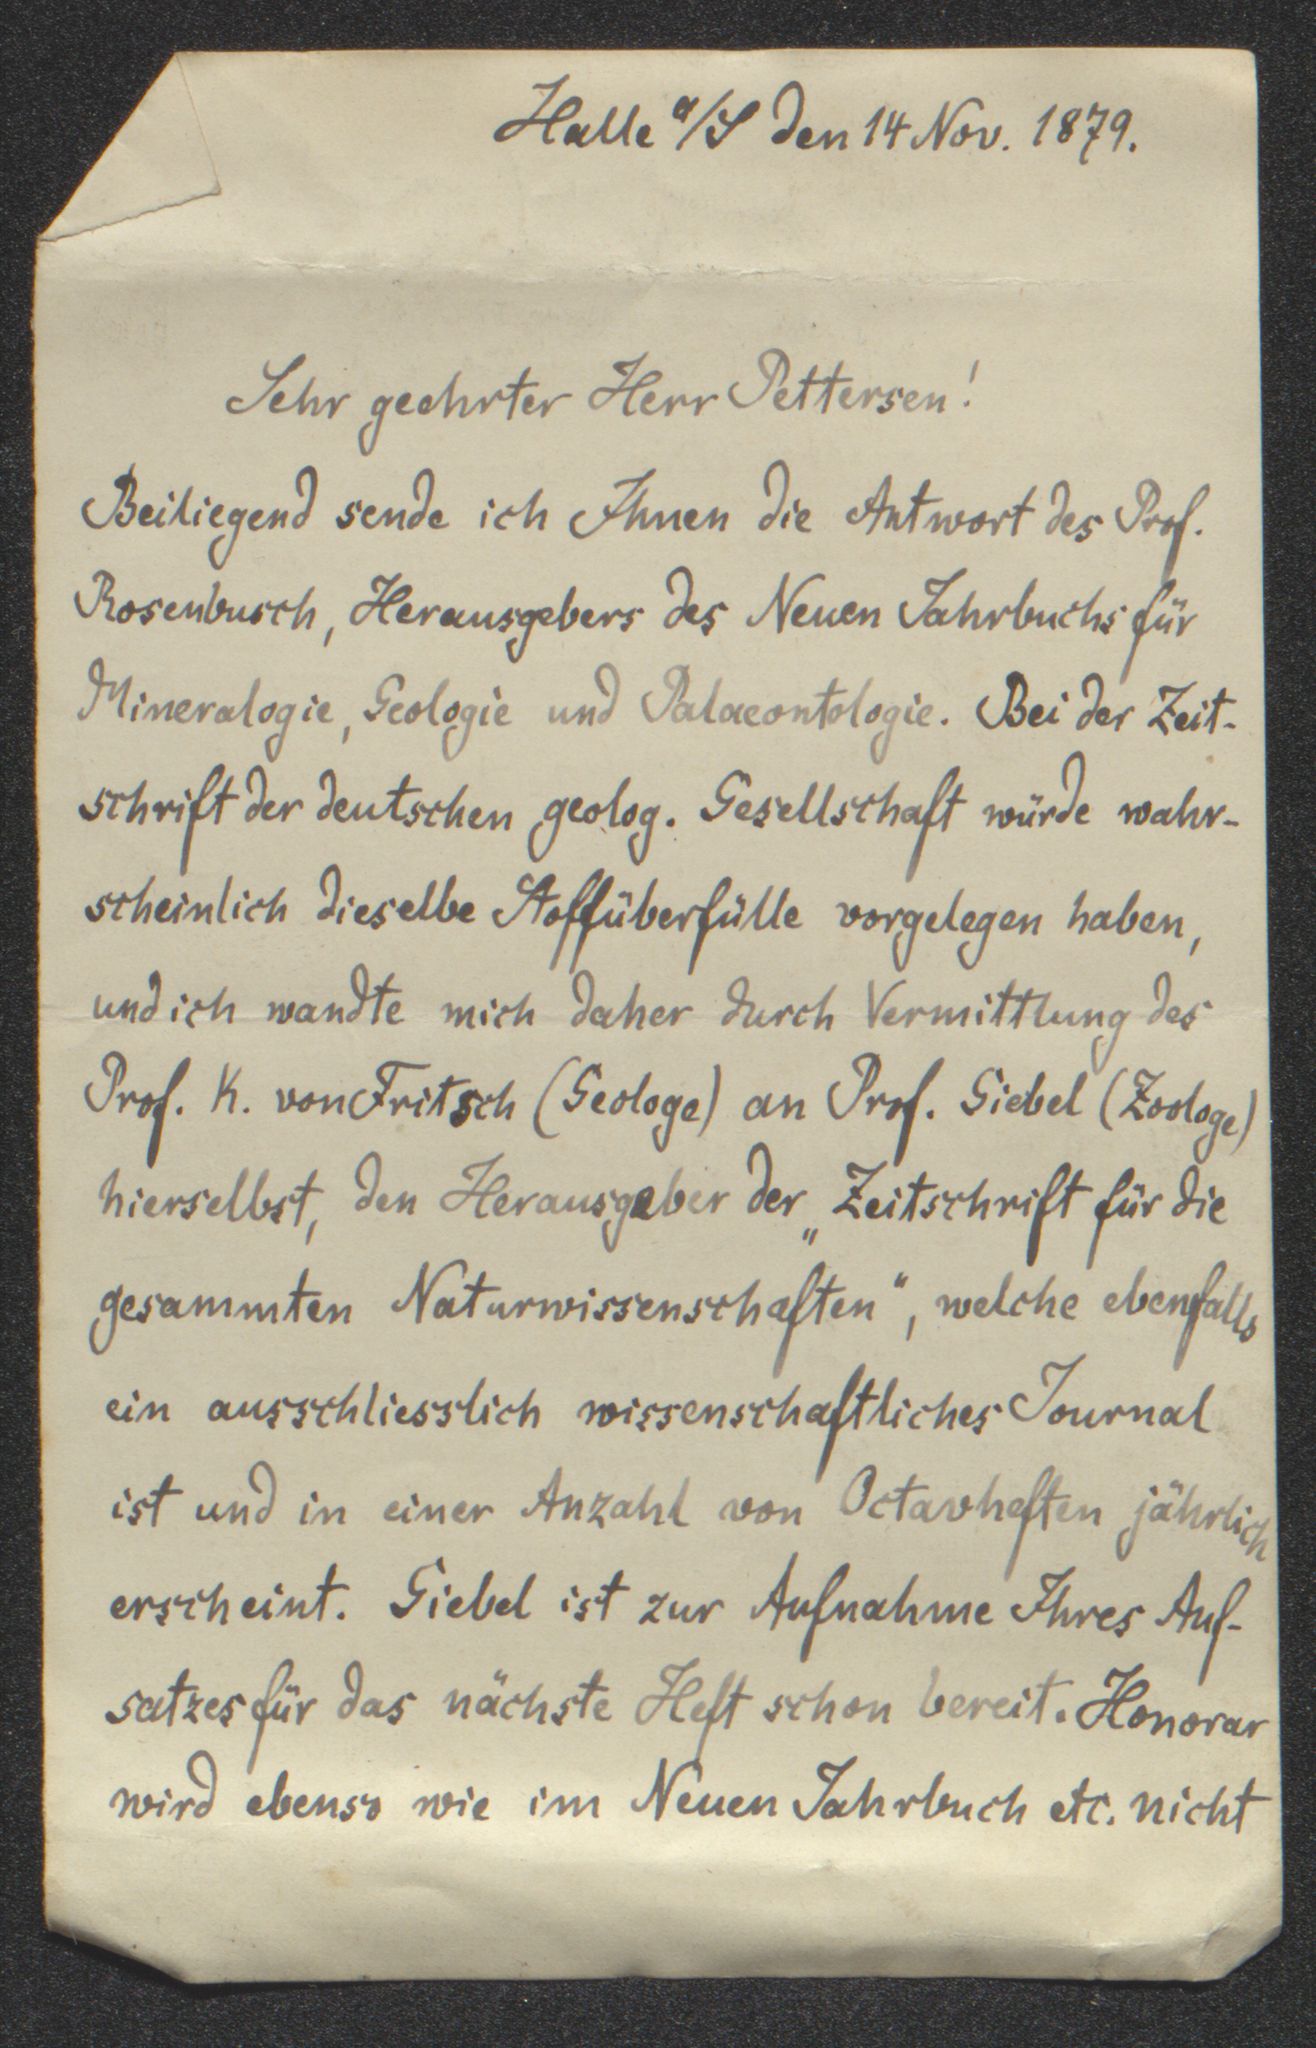 Halle a/S den 14 Nov. 1879.
Sehr geehrter Herr Pettersen!
Beiliegend sende ich Ihnen die Antwort des Prof.
Rosenbusch, Herausgebers des Neuen Jahrbuchs für
Mineralogie, Geologie und Palaeontologie. Bei der Zeit-
schrift der deutschen geolog. Gesellschaft würde wahr-
scheinlich dieselbe Stoffüberfülle vorgelegen haben,
und ich wandte mich daher durch Vermittlung des
Prof. K. von Fritsch (Geologe) an Prof. Giebel (Zoologe)
hierselbst, den Herausgeber der „Zeitschrift für die
gesammten Naturwissenschaften“, welche ebenfalls
ein ausschliesslich wissenschaftliches Journal
ist und in einer Anzahl von Octavheften jährlich
erscheint. Giebel ist zur Aufnahme Ihres Auf-
satzes für das nächste Heft schon bereit. Honorar
wird ebenso wie im Neuen Jahrbuch etc. nicht